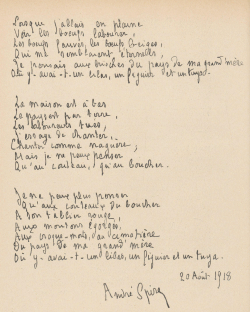 Lorsque j'allais en plaine
Voir les boeufs labourer,
Les boeufs fauves, les boeufs beiges,
Qui me semblaient éternels,
Je pensais aux ruches du pays de ma grand'mère
Où y-avait-t-un lilas, un figuier et un tuya.
La maison est à bas
Le paysan par terre,
Les labourants tués,
J'essaye de chanter,
Chanter comme naguère;
Mais je ne peux penser
Qu'au couteau, qu'au boucher.
Je ne peux plus penser
Qu'aux couteaux du boucher
A son tablier rouge,
Aux moutons égorgés,
Aux croque-morts, au cimetière
Du pays de ma grand'mère
Où y-avait-t-un lilas, un figuier et un tuya.
20 Août 1918
André Spire